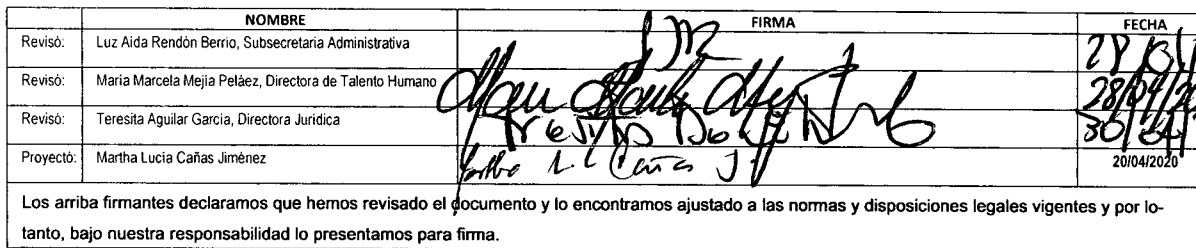 NOMBRE FIRMA FECHA
Revisó: Luz Aida Rendón Berrio, Subsecretaria Administrativa
Revisó: María Marcela Mejía Peláez, Directora de Talento Humano 28/04/20
Revisó: Teresita Aguilar García, Directora Jurídica 30/04/
Proyectó: Martha Lucía Cañas Jiménez Martha L. Cañas J. 20/04/2020
Los arriba firmantes declaramos que hemos revisado el documento y lo encontramos ajustado a las normas y disposiciones legales vigentes y por lo-
tanto, bajo nuestra responsabilidad lo presentamos para firma.